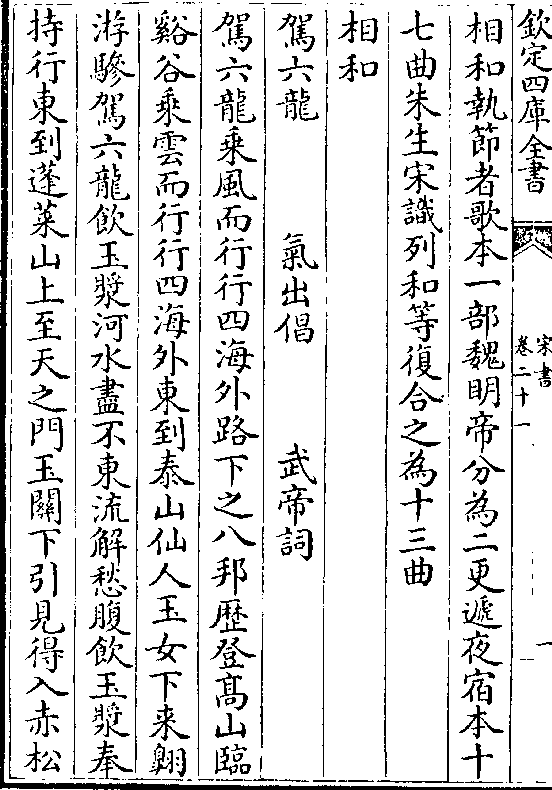 欽定四庫全書
宋書
卷二十一
一
相和執節者歌本一部魏明帝分為二更遞夜宿本十
七曲朱生宋識列和等復合之為十三曲
相和
駕六龍　氣出倡　武帝詞
駕六龍乘風而行行四海外路下之八邦歷登髙山臨
谿谷乘雲而行行四海外東到泰山仙人玉女下来翺
游驂駕六龍飲玉漿河水盡不東流解愁腹飲玉漿奉
持行東到蓬萊山上至天之門玉闕下引見得入赤松